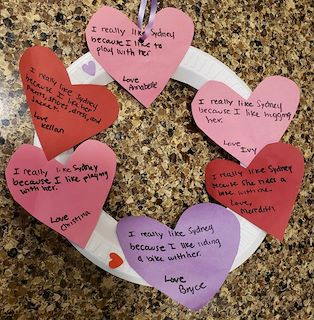 I really like Sydney
because I like to
play with her
Love
Annabelle
I really like Sydney
because I like hugging
her.
Love
Ivy
I really like Sydney
because she rides a
bike with me.
Love,
Meredith
I really like Sydney
because I like riding
a bike with her.
Love
Bryce
I really like Sydney
because I like playing
with her.
Love
Christina
I really like Sydney
because I like her
pants, shoes, dress, and
Love
Kellan